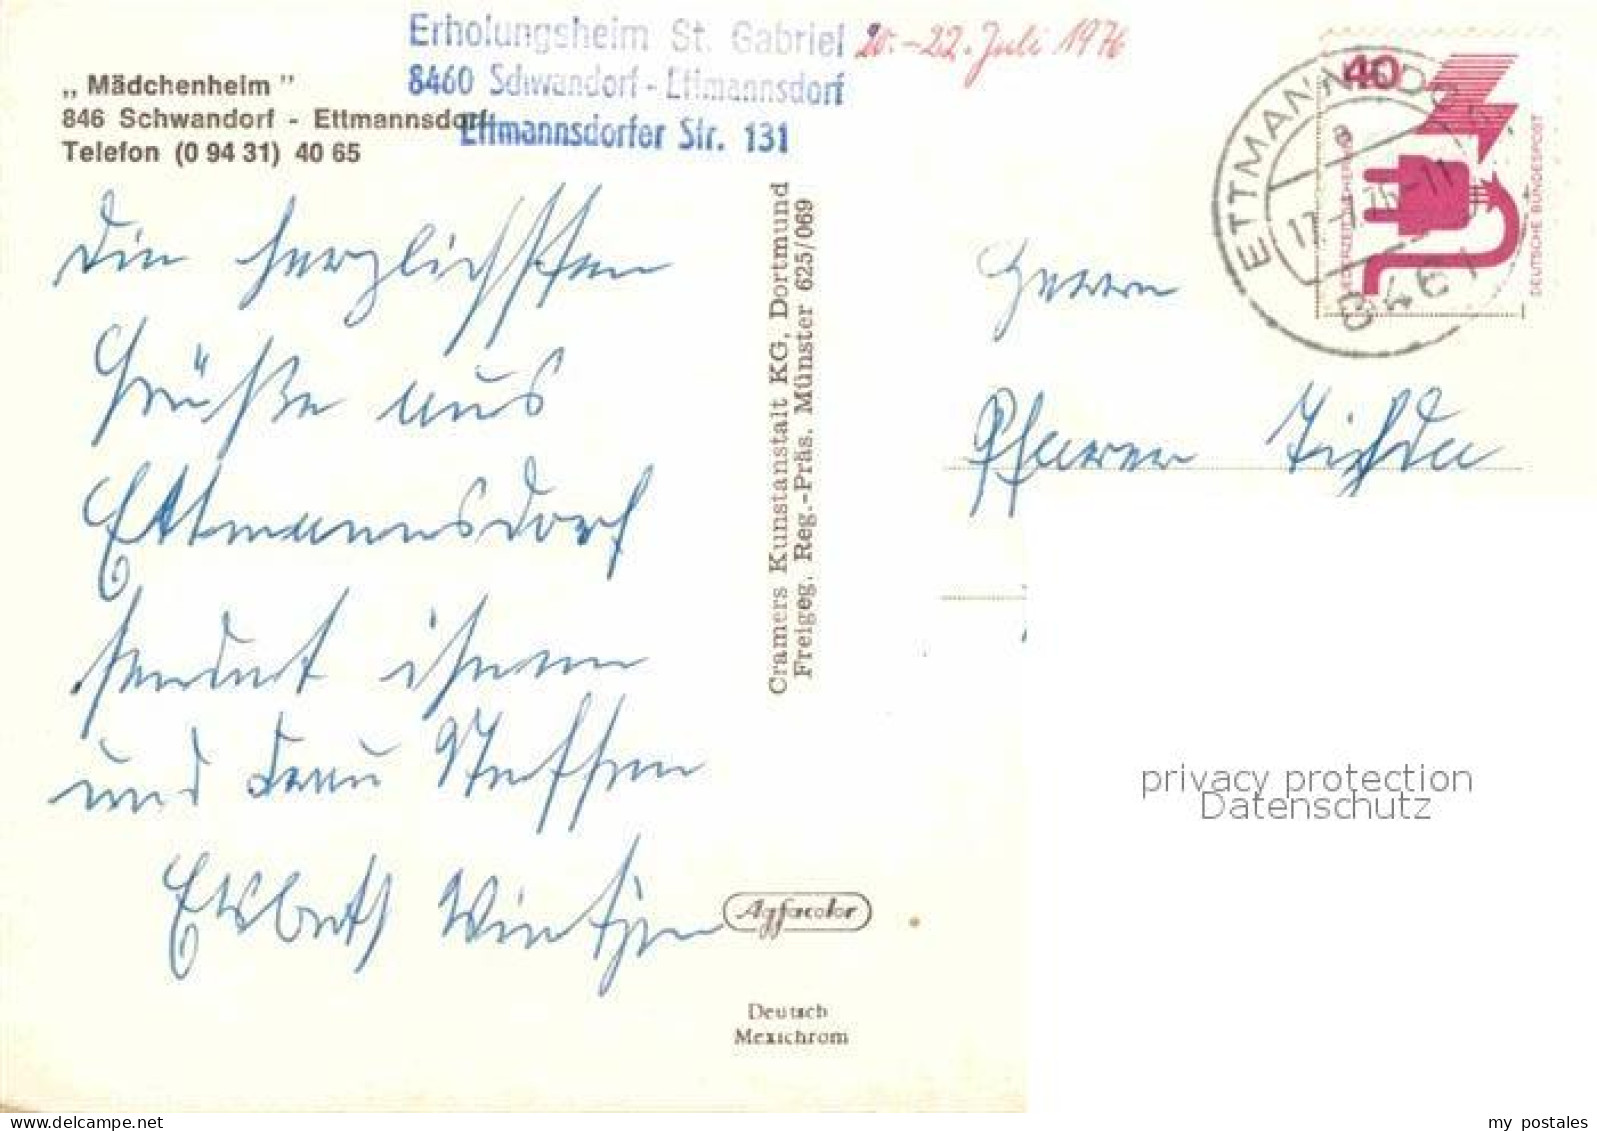 Erholungsheim St. Gabriel 20.-22. Juli 1976
8460 Schwandorf - Ettmannsdorf
Ettmannsdorfer Str. 131
„ Mädchenheim "
846 Schwandorf - Ettmannsdorf
Telefon (0 94 31) 40 65
Die herzlichsten
Grüße aus
Ettmannsdorf
sendet ihnen
und Frau Steffen
Elsbeth
Cramers Kunstanstalt KG, Dortmund
Freigeg. Reg.-Präs. Münster 625/069
Agfacolor
Deutsch
Mexichrom
40
JEDERZEIT SICHERHEIT
DEUTSCHE BUNDESPOST
ETTMANNSDORF
a
8461
Herrn
Pfarrer
privacy protection
Datenschutz
my postales